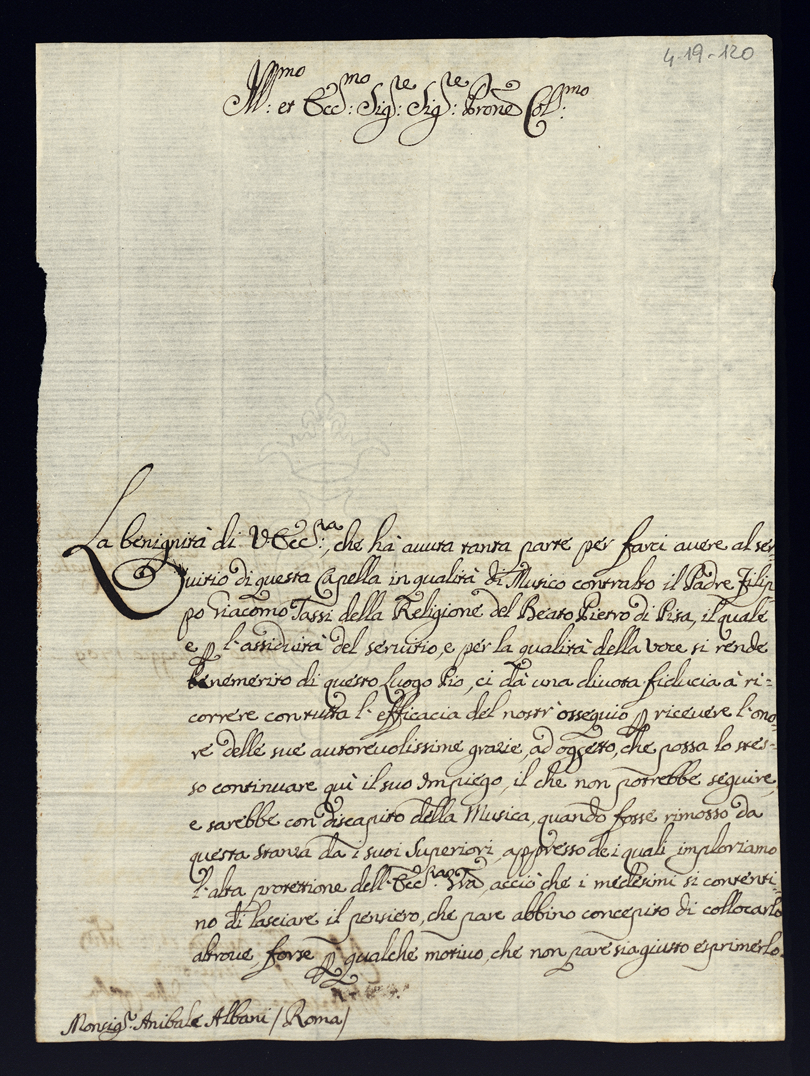 4-19-120
Ill:mo et Ecc:mo Sig:re Sig:re Prone Col:mo
La benignità di V. Ecc:za, che hà auuta tanta parte per farci auere al ser
uitio di questa Capella in qualità di Musico contralto il Padre Filip
po Giacomo Tassi della Religione del Beato Pietro di Pisa, il quale
e p l'assiduità del seruitio, e per la qualità della voce si rende
benemerito di questo Luogo Pio, ci dà una diuota fiducia à ri=
correre con tutta l'efficacia del nostr'ossequio p riceuere l'ono=
re delle sue autoreuolissime grazie, ad oggetto, che possa lo stes=
so continuare quì il suo Impiego, il che non potrebbe seguire,
e sarebbe con discapito della Musica, quando fosse rimosso da
questa stanza da i suoi Superiori, appresso de i quali imploriamo
l'alta protettione dell'Ecc:za Vra, acciò che i medesimi si contenti=
no di lasciare il pensiero, che pare abbino concepito di collocarlo
altroue forse p qualche motiuo, che non pare sia giusto esprimerlo.
Monsig:r Anibale Albani / Roma /